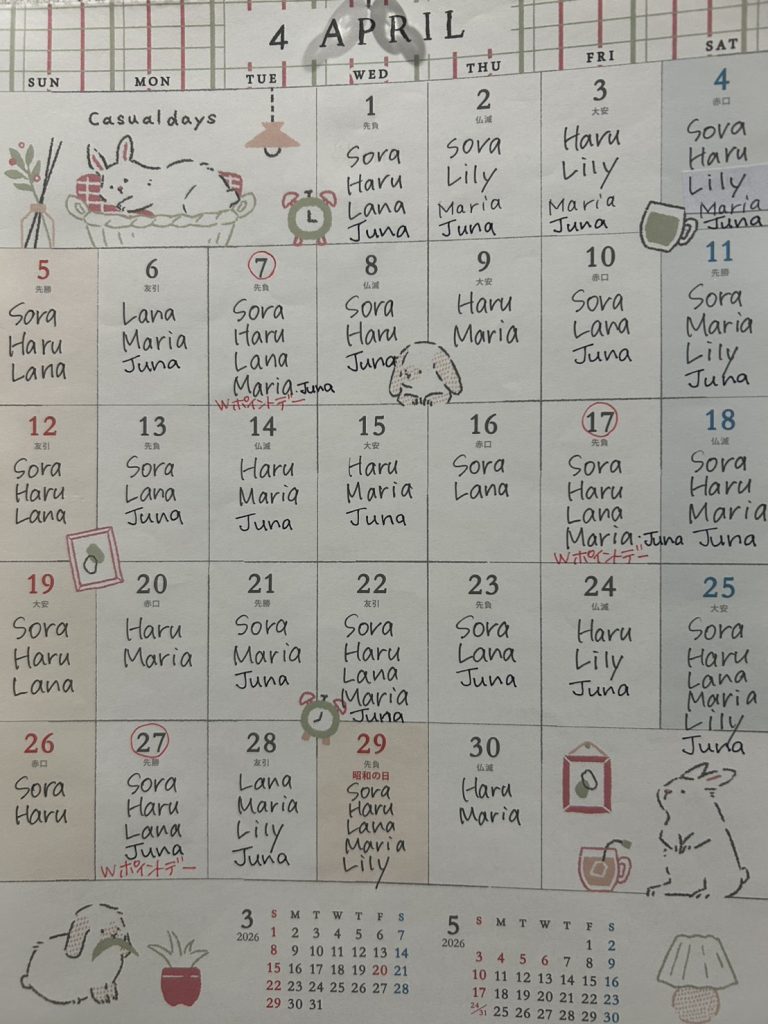 4 APRIL
SUN MON TUE WED THU FRI SAT
Casual days
1
先負
Sora
Haru
Lana
Juna
2
仏滅
Sora
Lily
Maria
Juna
3
大安
Haru
Lily
Maria
Juna
4
赤口
Sora
Haru
Lily
Maria
Juna
5
先勝
Sora
Haru
Lana
6
友引
Lana
Maria
Juna
7
先負
Sora
Haru
Lana
Maria・Juna
Wポイントデー
8
仏滅
Sora
Haru
Juna
9
大安
Haru
Maria
10
赤口
Sora
Lana
Juna
11
先勝
Sora
Maria
Lily
Juna
12
友引
Sora
Haru
Lana
13
先負
Sora
Lana
Juna
14
仏滅
Haru
Maria
Juna
15
大安
Haru
Maria
Juna
16
赤口
Sora
Lana
17
先負
Sora
Haru
Lana
Maria・Juna
Wポイントデー
18
仏滅
Sora
Haru
Maria
Juna
19
大安
Sora
Haru
Lana
20
赤口
Haru
Maria
21
先勝
Sora
Maria
Juna
22
友引
Sora
Haru
Lana
Maria
Juna
23
先負
Sora
Lana
Juna
24
仏滅
Haru
Lily
Juna
25
大安
Sora
Haru
Lana
Maria
Lily
Juna
26
赤口
Sora
Haru
27
先勝
Sora
Haru
Lana
Juna
Wポイントデー
28
友引
Lana
Maria
Lily
Juna
29
先負
昭和の日
Sora
Haru
Lana
Maria
Lily
30
仏滅
Haru
Maria
3
2026
S M T W T F S
1 2 3 4 5 6 7
8 9 10 11 12 13 14
15 16 17 18 19 20 21
22 23 24 25 26 27 28
29 30 31
5
2026
S M T W T F S
1 2
3 4 5 6 7 8 9
10 11 12 13 14 15 16
17 18 19 20 21 22 23
24/31 25 26 27 28 29 30